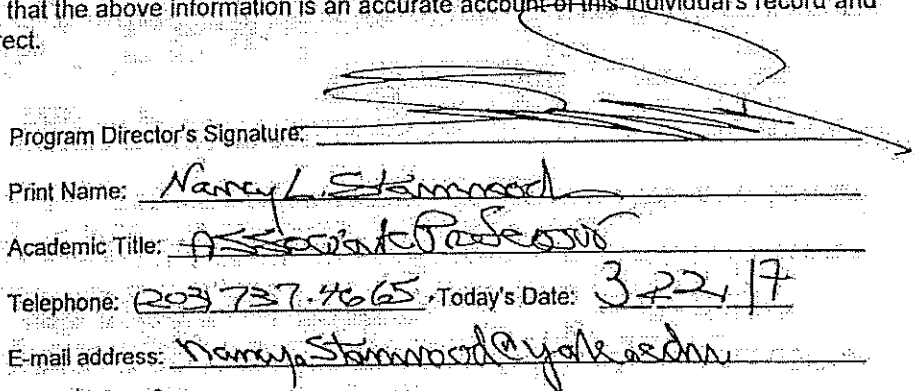 that the above information is an accurate account of this individual's record and
rect.
Program Director's Signature:
Print Name: Nancy L. Stanwood
Academic Title: Associate Professor
Telephone: (203) 737.4665 Today's Date: 3.22.17
E-mail address: nancy.stanwood@yale.edu